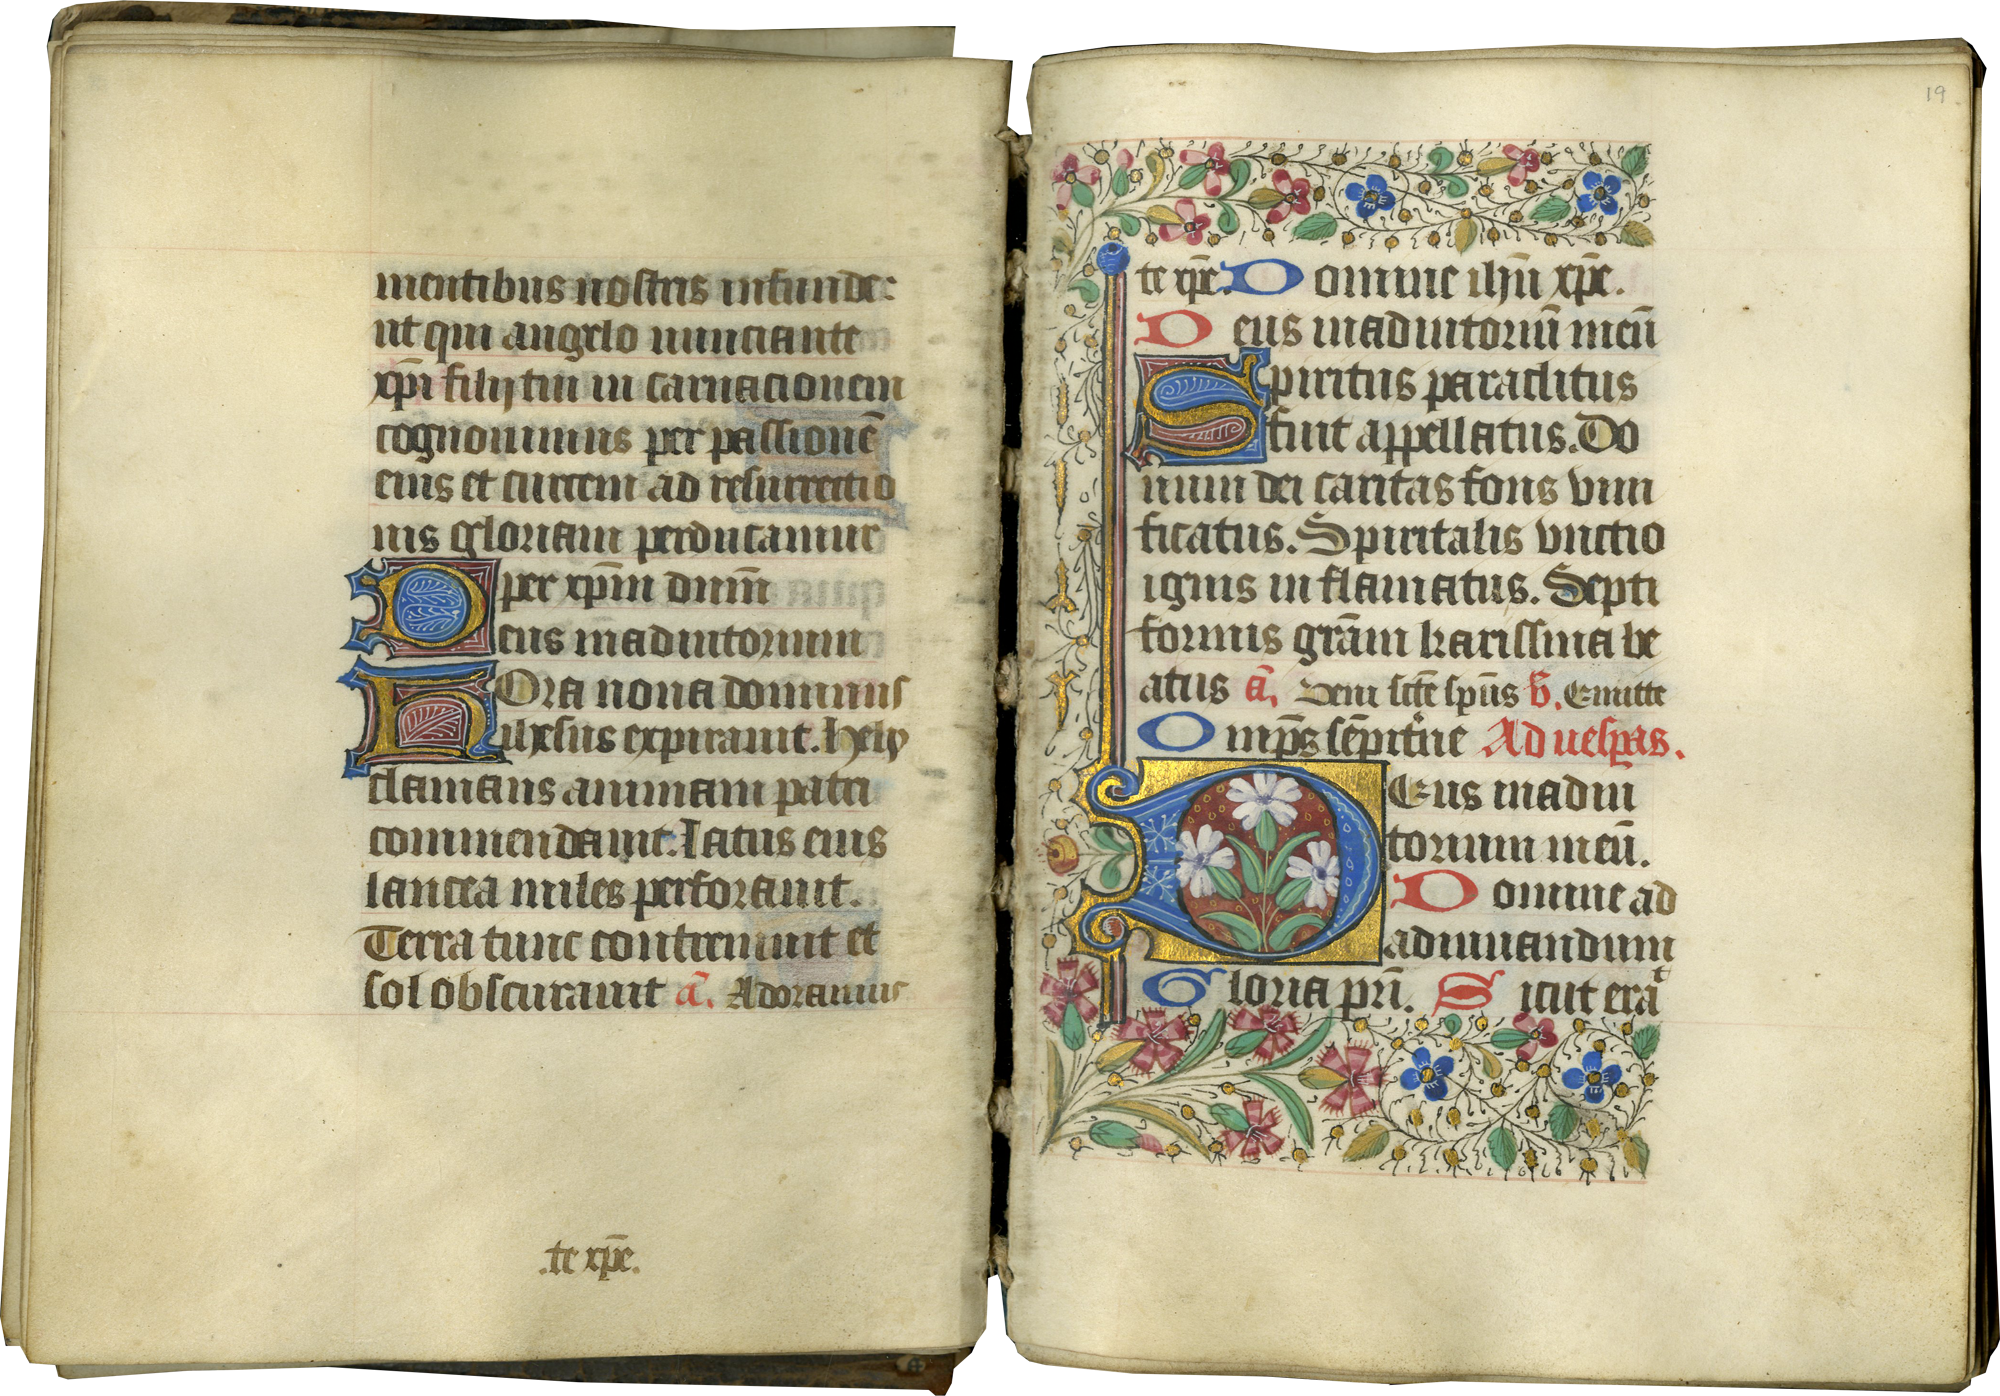 mentibus nostris infunde:
ut qui angelo nunciante
xp̄i filij tui in carnacionem
cognouimus per passionē
eius et crucem ad resurrectio
nis gloriam perducamur
per xp̄m dn̄m
Deus in adiutorium
Hora nona dominus
ihesus expirauit. Hely
clamans animam patri
commendauit. Latus eius
lancea miles perforauit.
Terra tunc contremuit et
sol obscurauit a͞. Adoramus
.te xp̄e.
19
te xp̄e. Domine ihū xp̄e.
Deus in adiutoriū meū
Spiritus paraclitus
fuit appellatus. Do
num dei caritas fons viui
ficatus. Spiritalis vnctio
ignis inflamatus. Septi
formis grām karissma be
atus a͞. Veni sc̄te sp̄us v̄. Emitte
Omp̄s sēpit'ne Ad uesp̄as.
Deus in adiu
torium meū.
Domine ad
adiuuandum
Gloria pr̄i. Sicut eraᵗ